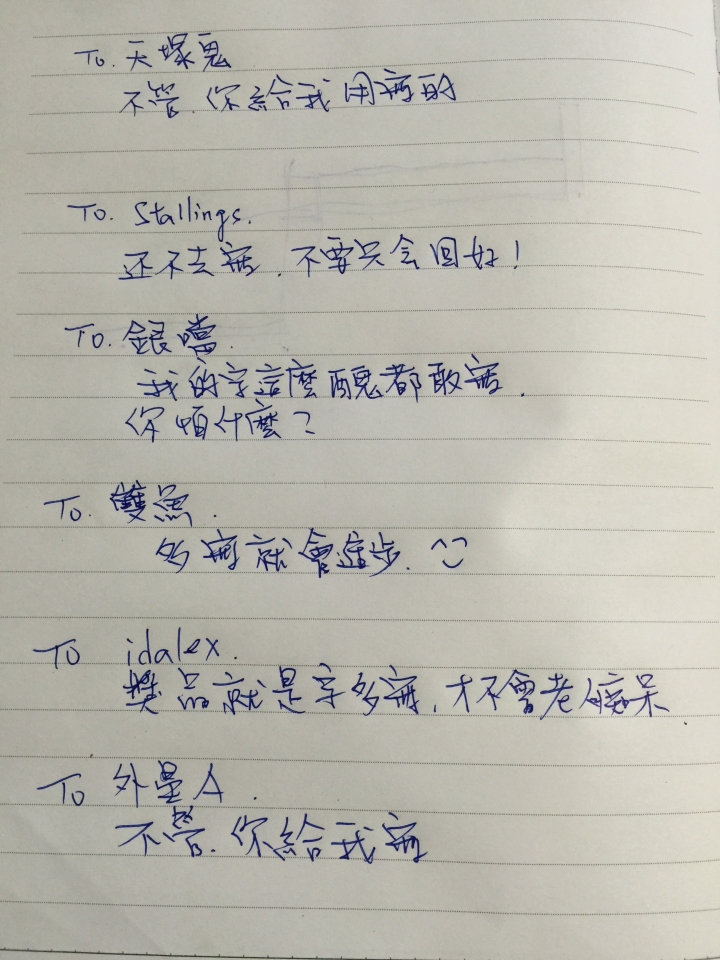 To. 天塚鬼
不管.你給我用寫的
To. Stallings.
还不去寫.不要只会回好!
To. 銀噹.
我的字這麼醜都敢寫.
你怕什麼?
To. 雙魚.
多寫就會進步. ^^
To idalex.
獎品就是字多寫.才不會老人痴呆
To 外星人.
不管.你給我寫